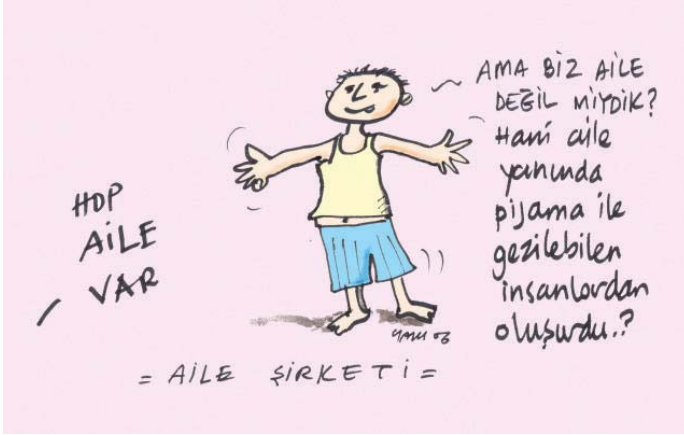 HOP
AİLE
VAR
AMA BİZ AİLE
DEĞİL MİYDİK?
Hani aile
yanında
pijama ile
gezilebilen
insanlardan
oluşurdu..?
= AİLE ŞİRKETİ =